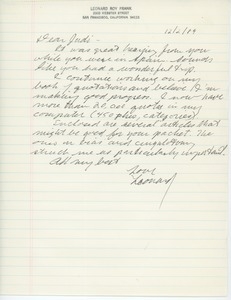 LEONARD ROY FRANK
2300 WEBSTER STREET
SAN FRANCISCO, CALIFORNIA 94115
12/2/89
Dear Judi -
It was great hearing from you
while you were in Spain. Sounds
like you had a wonderful trip.
I continue working on my
book of quotations and believe I'm
making good progress. I now have
more than 20,000 quotes in my
computer (450 plus, categories).
Enclosed are several articles that
might be good for your packet. The
ones in bold and
struck me as particularly important.
All my best
Love
Leonard